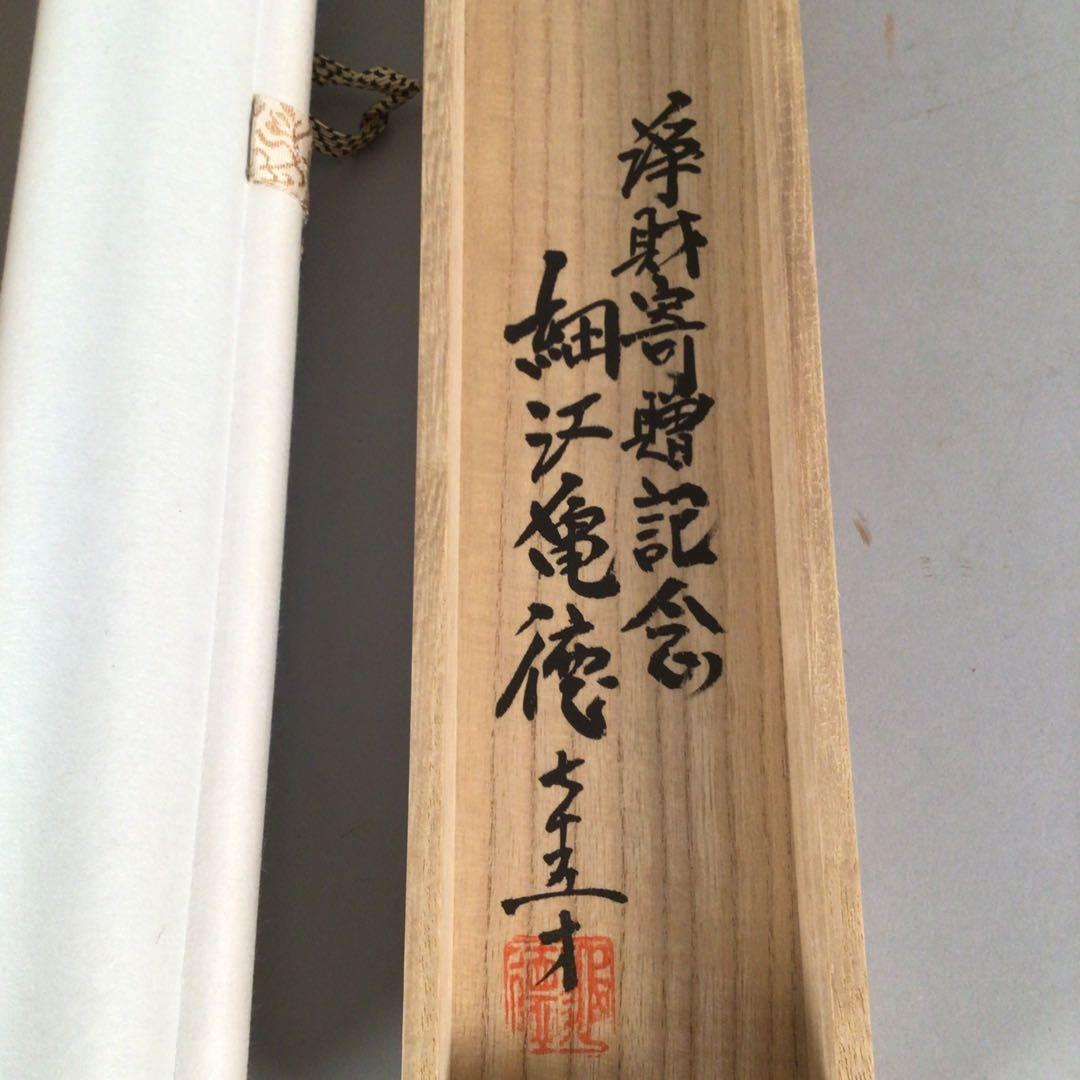 浄財寄贈記念
細江亀徳七十五才